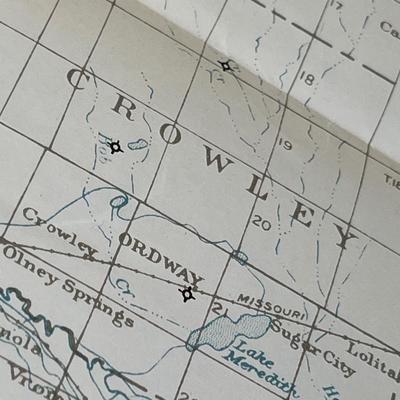 17
Ca
18
CROWLEY
19
T.18
20
Crowley
ORDWAY
MISSOURI
21
Olney Springs
Sugar City
Lolita
Lake
Meredith
nola